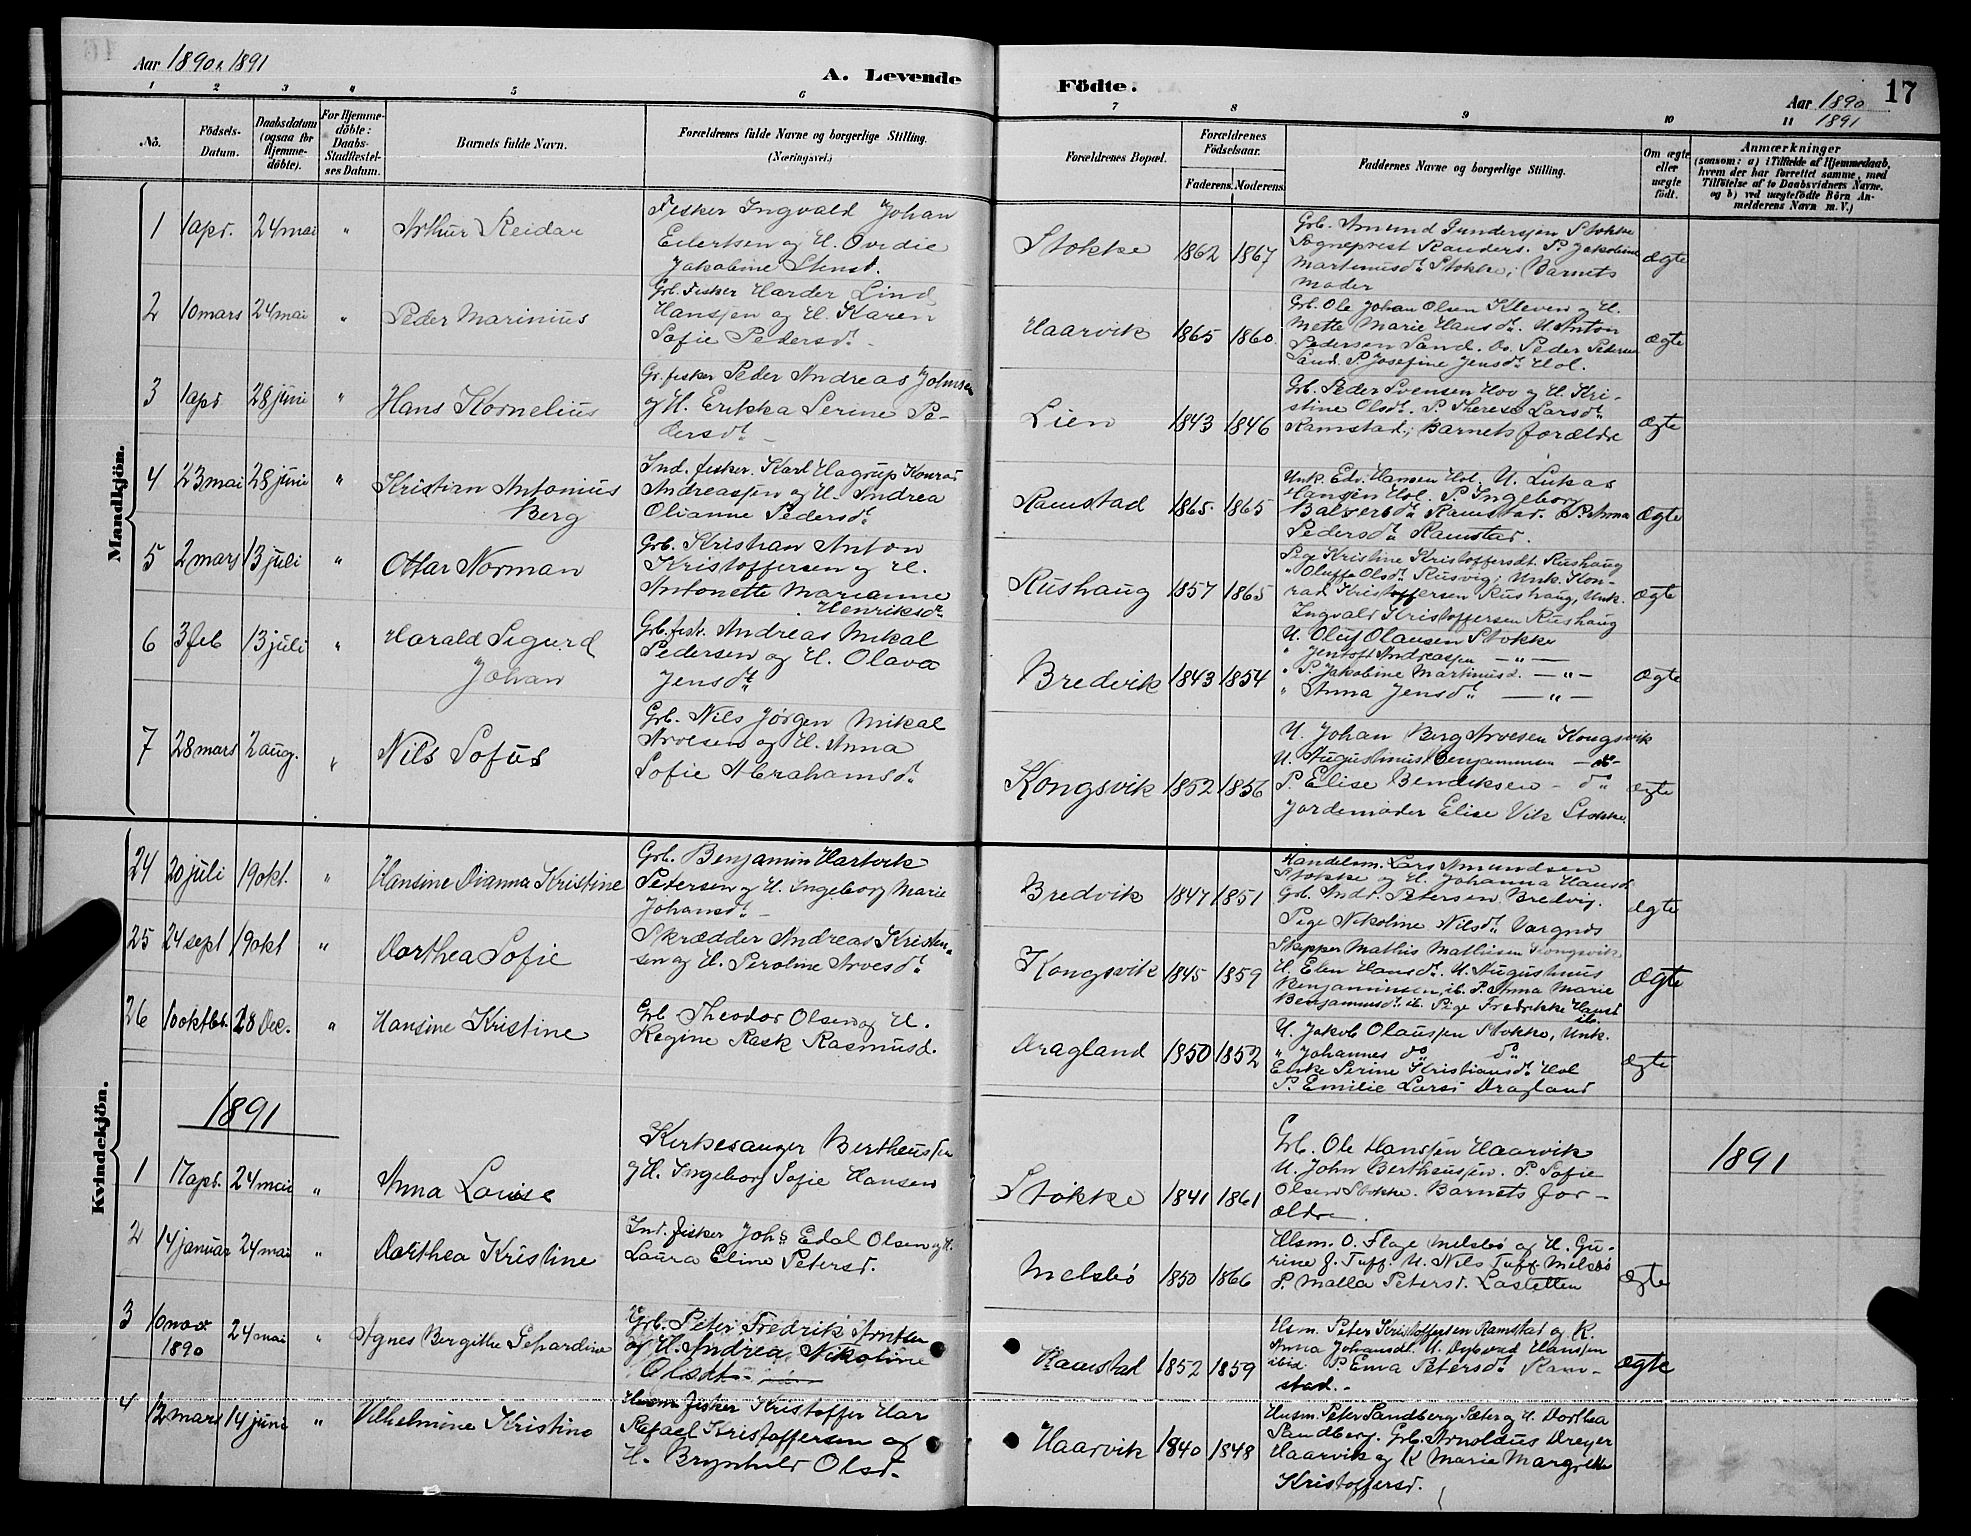 Aar 1890 & 1891
A. Levende
Födte.
17
Aar 1890
1891
1 2 3 4 5 6 7 8 9 10 11
No.
Födsels-Datum.
Daabsdatum (ogsaa for Hjemme-döbte).
For Hjemme-döbte: Daabs-Stadfæstel-ses Datum.
Barnets fulde Navn.
Forældrenes fulde Navne og borgerlige Stilling.
(Næringsvei.)
Forældrenes Bopæl.
Forældrenes Födselsaar.
Faderens. Moderens.
Faddernes Navne og borgerlige Stilling.
Om ægte eller uægte födt.
Anmærkninger
(saasom: a) i Tilfælde af Hjemmedaab,
hvem der har forrettet samme, med
Tilföielse af to Daabsvidners Navne.
og b) ved uægtefödte Börn An-
melderens Navn m. V.)
Mandkjön.
1 1 apr. 24 mai " Arthur Reidar
Fisker Ingvald Johan
Eilertsen og H. Ovedie
Jakobine Stensd.
Stokke 1862 1867
Grb. Amund Gundersen Stokke
Sogneprest Randers. P. Jakobine
Martinusd. Stokke; Barnets
moder
ægte
2 10 mars 24 mai " Peder Marinius
Grb. Fisker Harder Lind
Hanssen og H. Karen
Sofie Pedersd.
Haarvik 1865 1860
Grb. Ole Johan Olsen Kleven og H.
Mette Marie Hansd. U. Anton
Pedersen Sand. Os. Peder Pedersen
Sand. P. Josefine Jensd. Hol.
ægte
3 1 apr 28 juni " Hans Kornelius
Gr. fisker Peder Andreas Johnsen
og H. Erikka Serine Pe-
dersd.
Lien 1843 1846
Grb. Peder Svensen Hov og H. Kri-
stine Olsd. P. Therese Larsd.
Ramstad; Barnets forældre
ægte
4 23 mai 28 juni " Kristian Antonius
Berg
Ind. fisker. Karl Hagrup Konrad
Andreassen og H. Andrea
Olianne Pedersd.
Ramstad 1865. 1865
Unk. Edv. Hansen Hol. U. Lukas
Hansen Hol. P. Ingeborg
Ramstad. P. Anna
Pedersd. Ramstad.
ægte
5 2 mars 13 juli " Ottar Norman
Grb. Kristian Anton
Kristoffersen og H.
Antonette Marianne
Henriksd.
Rushaug 1857 1865
Pige Kristine Kristoffersdt. Rushaug
" Oluffa Olsd. Rusvig; Unk. Kon-
rad Kristoffersen Rushaug, Unk.
Ingvald Kristoffersen Rushaug
ægte
6 3 feb 13 juli " Harald Sigurd
Johan
Grb. fisk. Andreas Mikal
Pedersen og H. Olava
Jensd.
Bredvik 1843 1854
U. Oluf Olausen Stokke
" Jentoft Andreassen — " —
" P. Jakobine Martinusd. — " —
" Anna Jensd. — " —
ægte
7 28 mars 2 aug. " Nils Sofus
Grb. Nils Jørgen Mikal
Arvesen og H. Anna
Sofie Abrahamsd.
Kongsvik 1852 1856
U. Johan Berg Arvesen Kongsvik
U. Augustinus Benjaminsen — do —
P. Elise Bendiksen — do
Jordemoder Elise Vik Stokke.
ægte
Kvindekjön.
24 20 juli 19 okt. " Hansine Dianna Kristine
Grb. Benjamin Hartvik
Petersen og H. Ingeborg Marie
Johansd.
Bredvik 1847 1851
Handelsm. Lars Amundsen
Stokke og H. Johanna Hansd.
Grb. Andr. Petersen Bredvig.
Pige Nikoline Nilsd. Vargnes
ægte
25 24 sept 19 okt " Dorthea Sofie
Skrædder Andreas Kristen-
sen og H. Peroline Arvesd.
Kongsvik 1845 1859
Skipper Mathis Mathisen Kongsvik
H. Elen Hansd. U. Augustinus
Benjaminsen, ib. P. Anna Marie
Benjaminsd. ib. Pige Fredrikke Hansd
ib.
ægte
26 10 oktbr. 28 Dec. " Hansine Kristine
Grb. Theodor Olsen og H.
Regine Rask Rasmusd.
Dragland 1850 1852
U. Jakob Olaussen Stokke, Unk.
" Johannes do do
Enke Serine Kristiansd. Hol
P. Emilie Larsd Dragland
ægte
1891
1891
1 17 apr. 24 mai " Anna Louise
Kirkesanger Bertheussen
og H. Ingeborg Sofie Hansen
Stokke 1841 1861
Grb. Ole Hanssen Haarvik
U. John Bertheussen. P. Sofie
Olsen Stokke. Barnets for-
ældre
2 14 januar 24 mai " Dorthea Kristine
Ind. fisker Johs Edal Olsen og H.
Laura Eline Petersd.
Melsbö 1850 1866
Husm. O. Flage Melsbö og H. Gu-
rine J. Tuff. U. Nils Tuff Melsbö
P. Malla Petersd. Lastetten
ægte
3 10 nov. 1890 24 mai " Agnes Bergithe Gehardine
Grb. Peter Fredrik Arntsen
og H. Andrea Nikoline
Olsdt.
Ramstad 1852 1859
Husm. Peter Kristoffersen Ramstad og K.
Anna Johansdt. U. Dybvad Hanssen
ibid P. Ema Petersd. Ram-
stad.
ægte
4 12 mars 14 juni " Vilhelmine Kristine
Husm. fisker Kristoffer Har
Rafael Kristoffersen og
H. Brynhild Olsd.
Haarvik 1840 1848
Husm. Peter Sandberg Sæter og H. Dorthea
Sandberg. Grb. Arnoldus Dreyer
Haarvik og K Marie Margrethe
Kristoffersd.